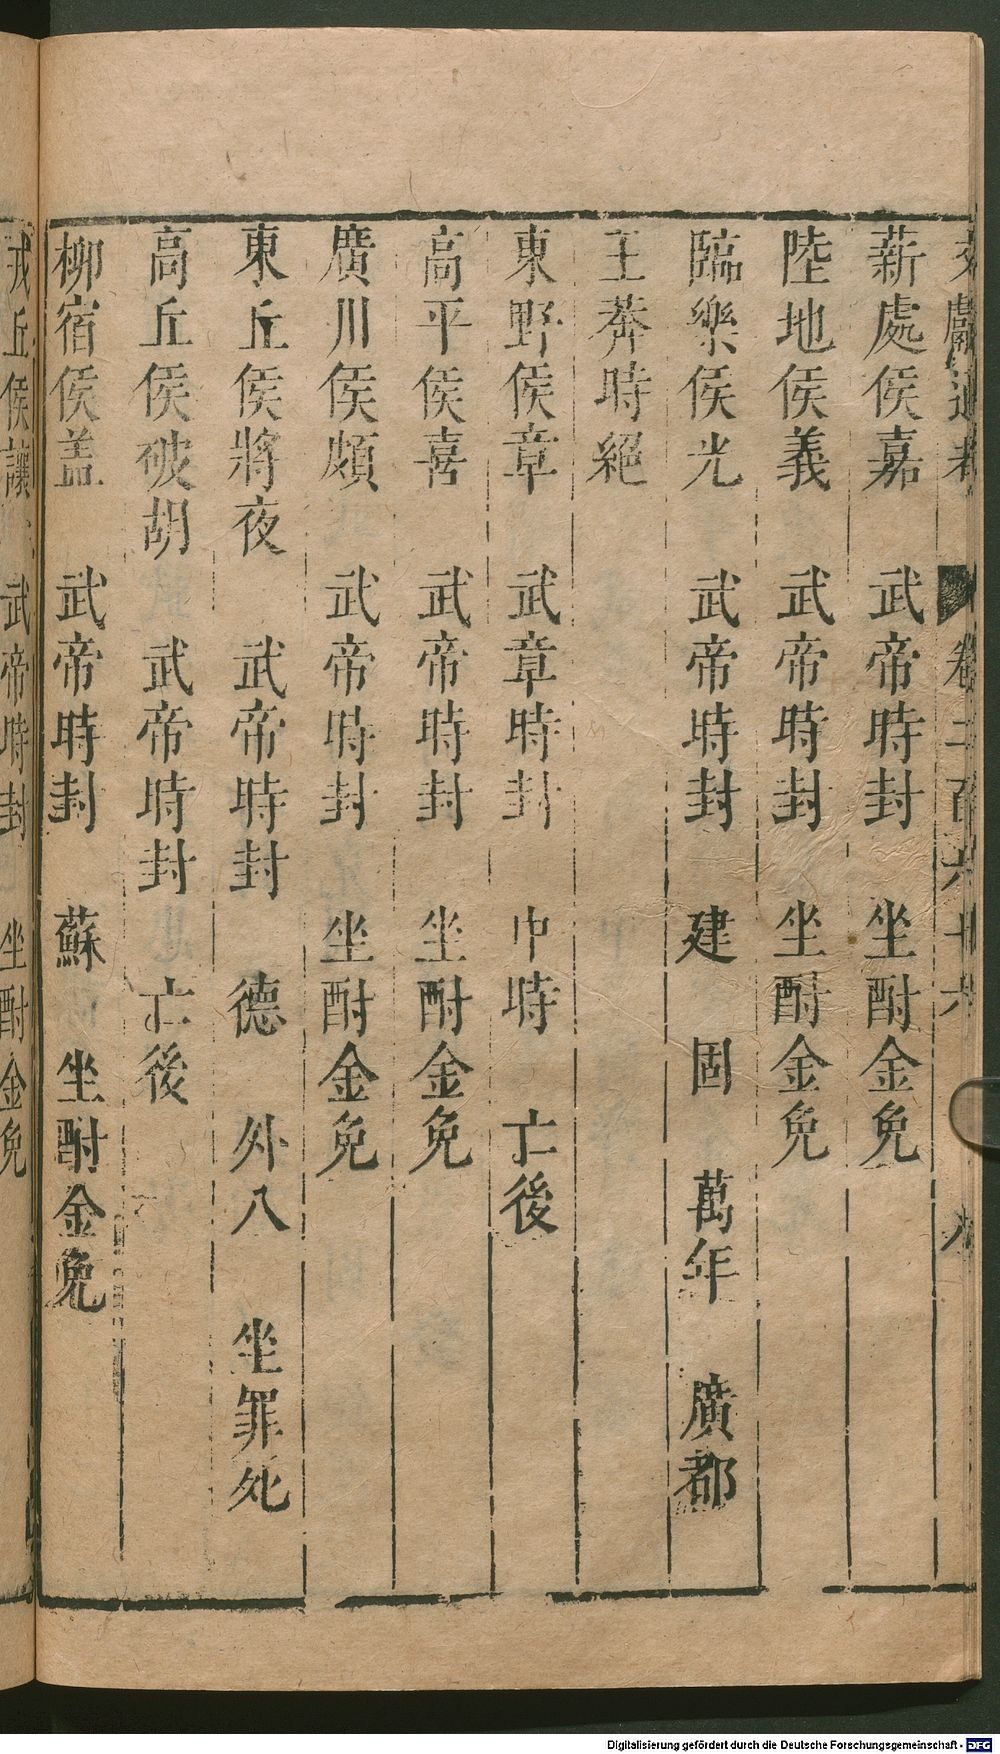 文獻通考 卷二百六十六 八
薪處侯嘉 武帝時封 坐酎金免
陸地侯義 武帝時封 坐酎金免
臨樂侯光 武帝時封 建 固 萬年 廣都
王莽時絕
東野侯章 武章時封 中時 亡後
高平侯喜 武帝時封 坐酎金免
廣川侯頗 武帝時封 坐酎金免
東丘侯將夜 武帝時封 德 外八 坐罪死
高丘侯破胡 武帝時封 亡後
柳宿侯盖 武帝時封 蘇 坐酎金免
戎丘侯讓 武帝時封 坐酎金免
Digitalisierung gefördert durch die Deutsche Forschungsgemeinschaft - DFG